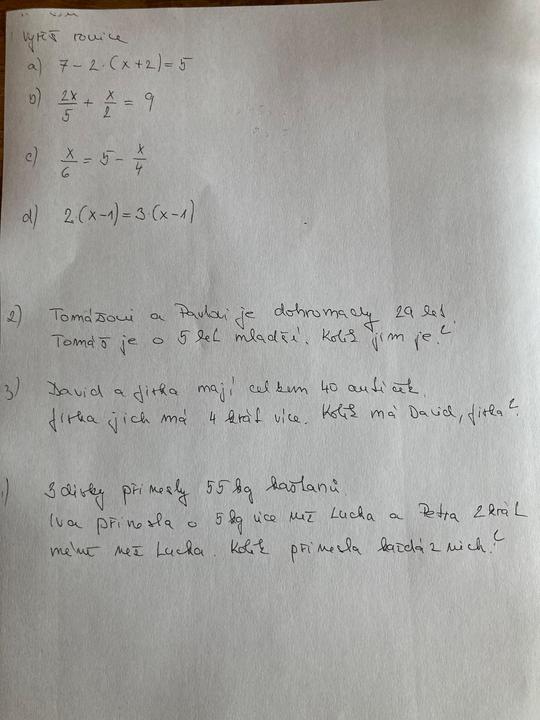 Vyřeš rovnice
a) 7 - 2·(x+2) = 5
b) 2x/5 + x/2 = 9
c) x/6 = 5 - x/4
d) 2·(x-1) = 3·(x-1)
2) Tomášovi a Pavlovi je dohromady 29 let.
Tomáš je o 5 let mladší. Kolik jim je?
3) David a Jirka mají celkem 40 autíček.
Jirka jich má 4 krát více. Kolik má David, Jirka?
) 3 dívky přinesly 55 kg kaštanů.
Iva přinesla o 5 kg více než Lucka a Petra 2 krát
méně než Lucka. Kolik přinesla každá z nich?